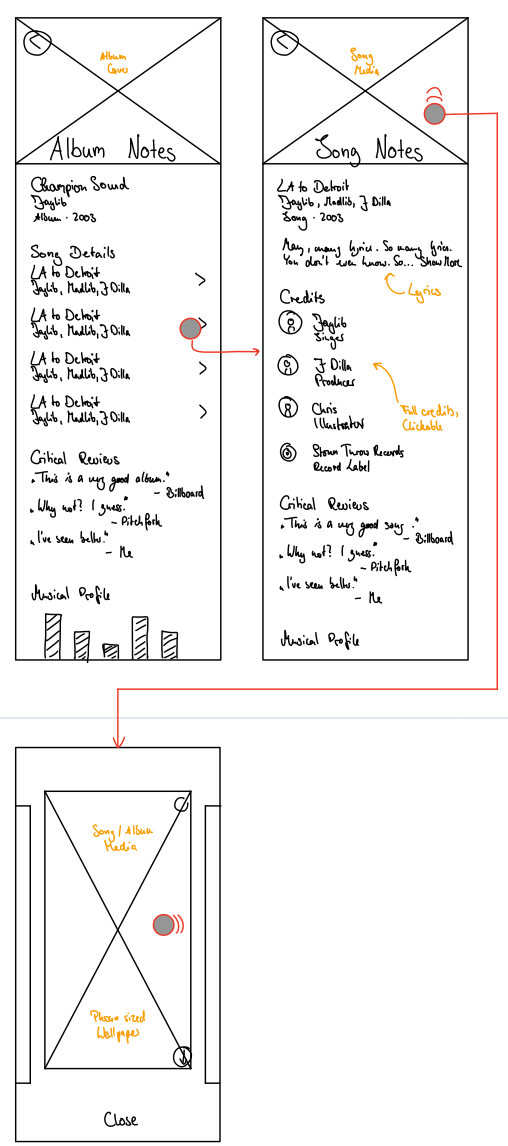 Album
Cover
Album Notes
Champion Sound
Jaylib
Album · 2003
Song Details
LA to Detroit
Jaylib, Madlib, J Dilla
LA to Detroit
Jaylib, Madlib, J Dilla
LA to Detroit
Jaylib, Madlib, J Dilla
LA to Detroit
Jaylib, Madlib, J Dilla
Critical Reviews
„This is a very good album."
- Billboard
„Why not? I guess."
- Pitchfork
„I've seen better."
- Me
Musical Profile
Song
Media
Song Notes
LA to Detroit
Jaylib, Madlib, J Dilla
Song · 2003
Many, many lyrics. So many lyrics.
You don't even know. So... Show More
Lyrics
Credits
Jaylib
Singer
J Dilla
Producer
Chris
Illustrator
Full credits,
Clickable
Stones Throw Records
Record Label
Critical Reviews
„This is a very good song."
- Billboard
„Why not? I guess."
- Pitchfork
„I've seen better."
- Me
Musical Profile
Song / Album
Media
Phone sized
Wallpaper
Close